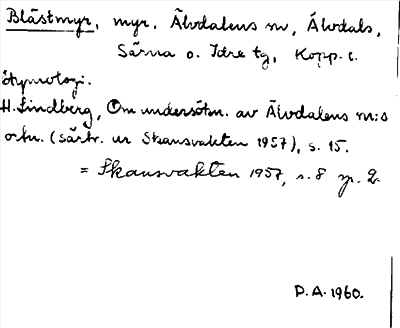 Blästmyr, myr. Älvdalens sn, Älvdals,
Särna o. Idre tg, Kopp. l.
Etymologi.
H. Lindberg, Om undersökn. av Älvdalens sn:s
ortn. (särtr. ur Skansvakten 1957), s. 15.
= Skansvakten 1957, s. 8 sp. 2.
D.A. 1960.